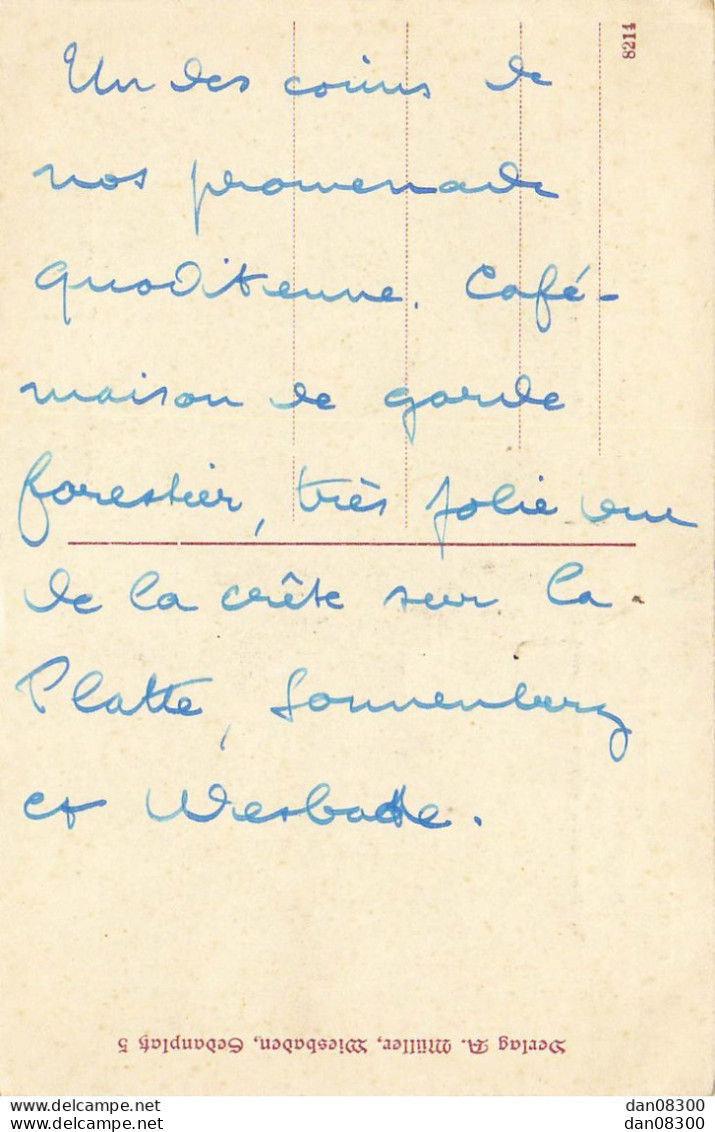 8214
Un des coins de
nos promenade
quoditienne. Café-
maison de garde
forestier, très jolie vue
de la crête sur la
Platte, Sonnenberg
et Wiesbade.
Verlag A. Müller, Wiesbaden, Sedanplatz 5
www.delcampe.net
dan08300
www.delcampe.net
dan08300